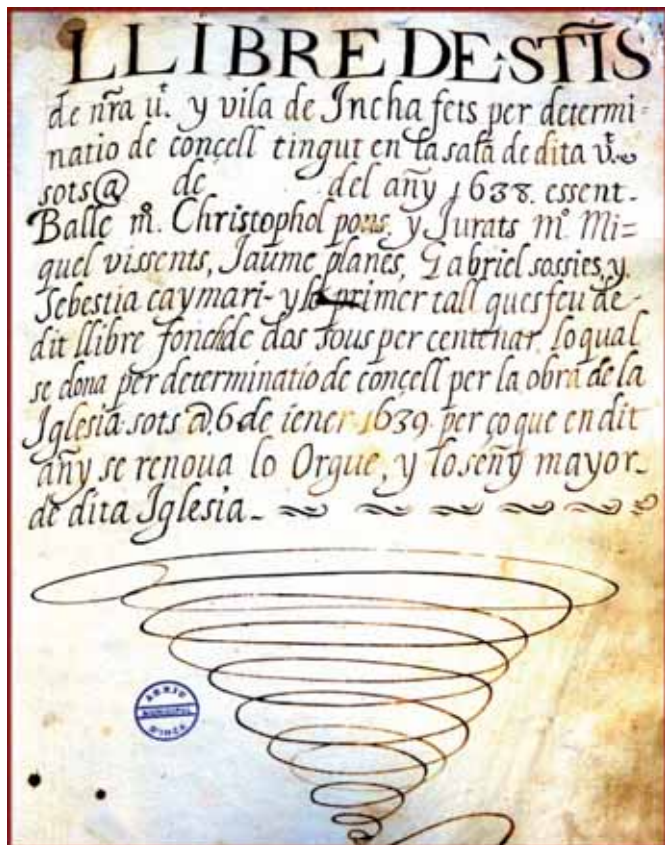 LLIBRE DE STĪS
de nr̃a uˢ. y vila de Incha fets per determi=
natio de conçell tingut en la sala de dita vˢ.
sots @ de del añy 1638. essent.
Balle mº. Christophol pons y Jurats mº. Mi=
quel vissents, Jaume planes, Gabriel sassies, y
Sebestia caymari- y lo primer tall ques feu de
dit llibre fonch de dos sous per centenar, lo qual
se dona per determinatio de conçell per la obra de la
Iglesia sots @. 6 de iener 1639. per ço que en dit
añy se renoua lo Orgue, y lo señy mayor
de dita Iglesia
ARXIU
MUNICIPAL
D'INCA